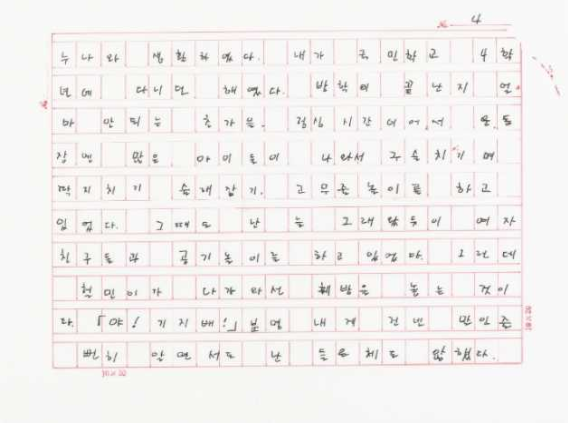 4
누나와 생활하였다. 내가 국민학교 4학
년에 다니던 해였다. 방학이 끝난지 얼
마 안되는 초가을. 점심시간이어서 운동
장엔 많은 아이들이 나와서 구슬치기며
딱지치기 술래잡기. 고무줄놀이를 하고
있었다. 그때도 난 는 그래왔듯이 여자
친구들과 공기놀이를 하고 있었다. 그런데
현민이가 다가와선 훼방을 놓는 것이
다. 「야! 기지배!」 분명 내게 건낸 말인줄
뻔히 알면서도 난 들은체도 않했다.